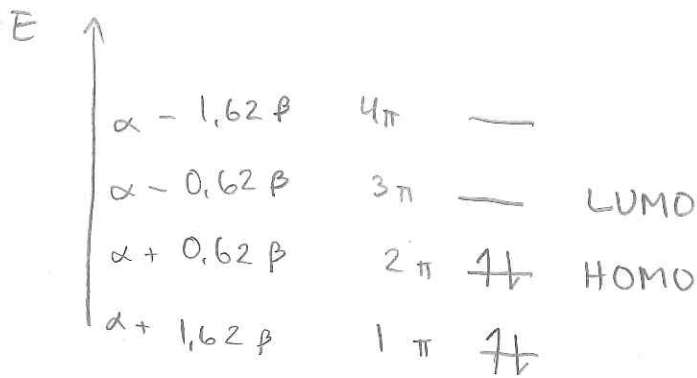 E
α - 1,62 β 4π
α - 0,62 β 3π LUMO
α + 0,62 β 2π HOMO
α + 1,62 β 1π